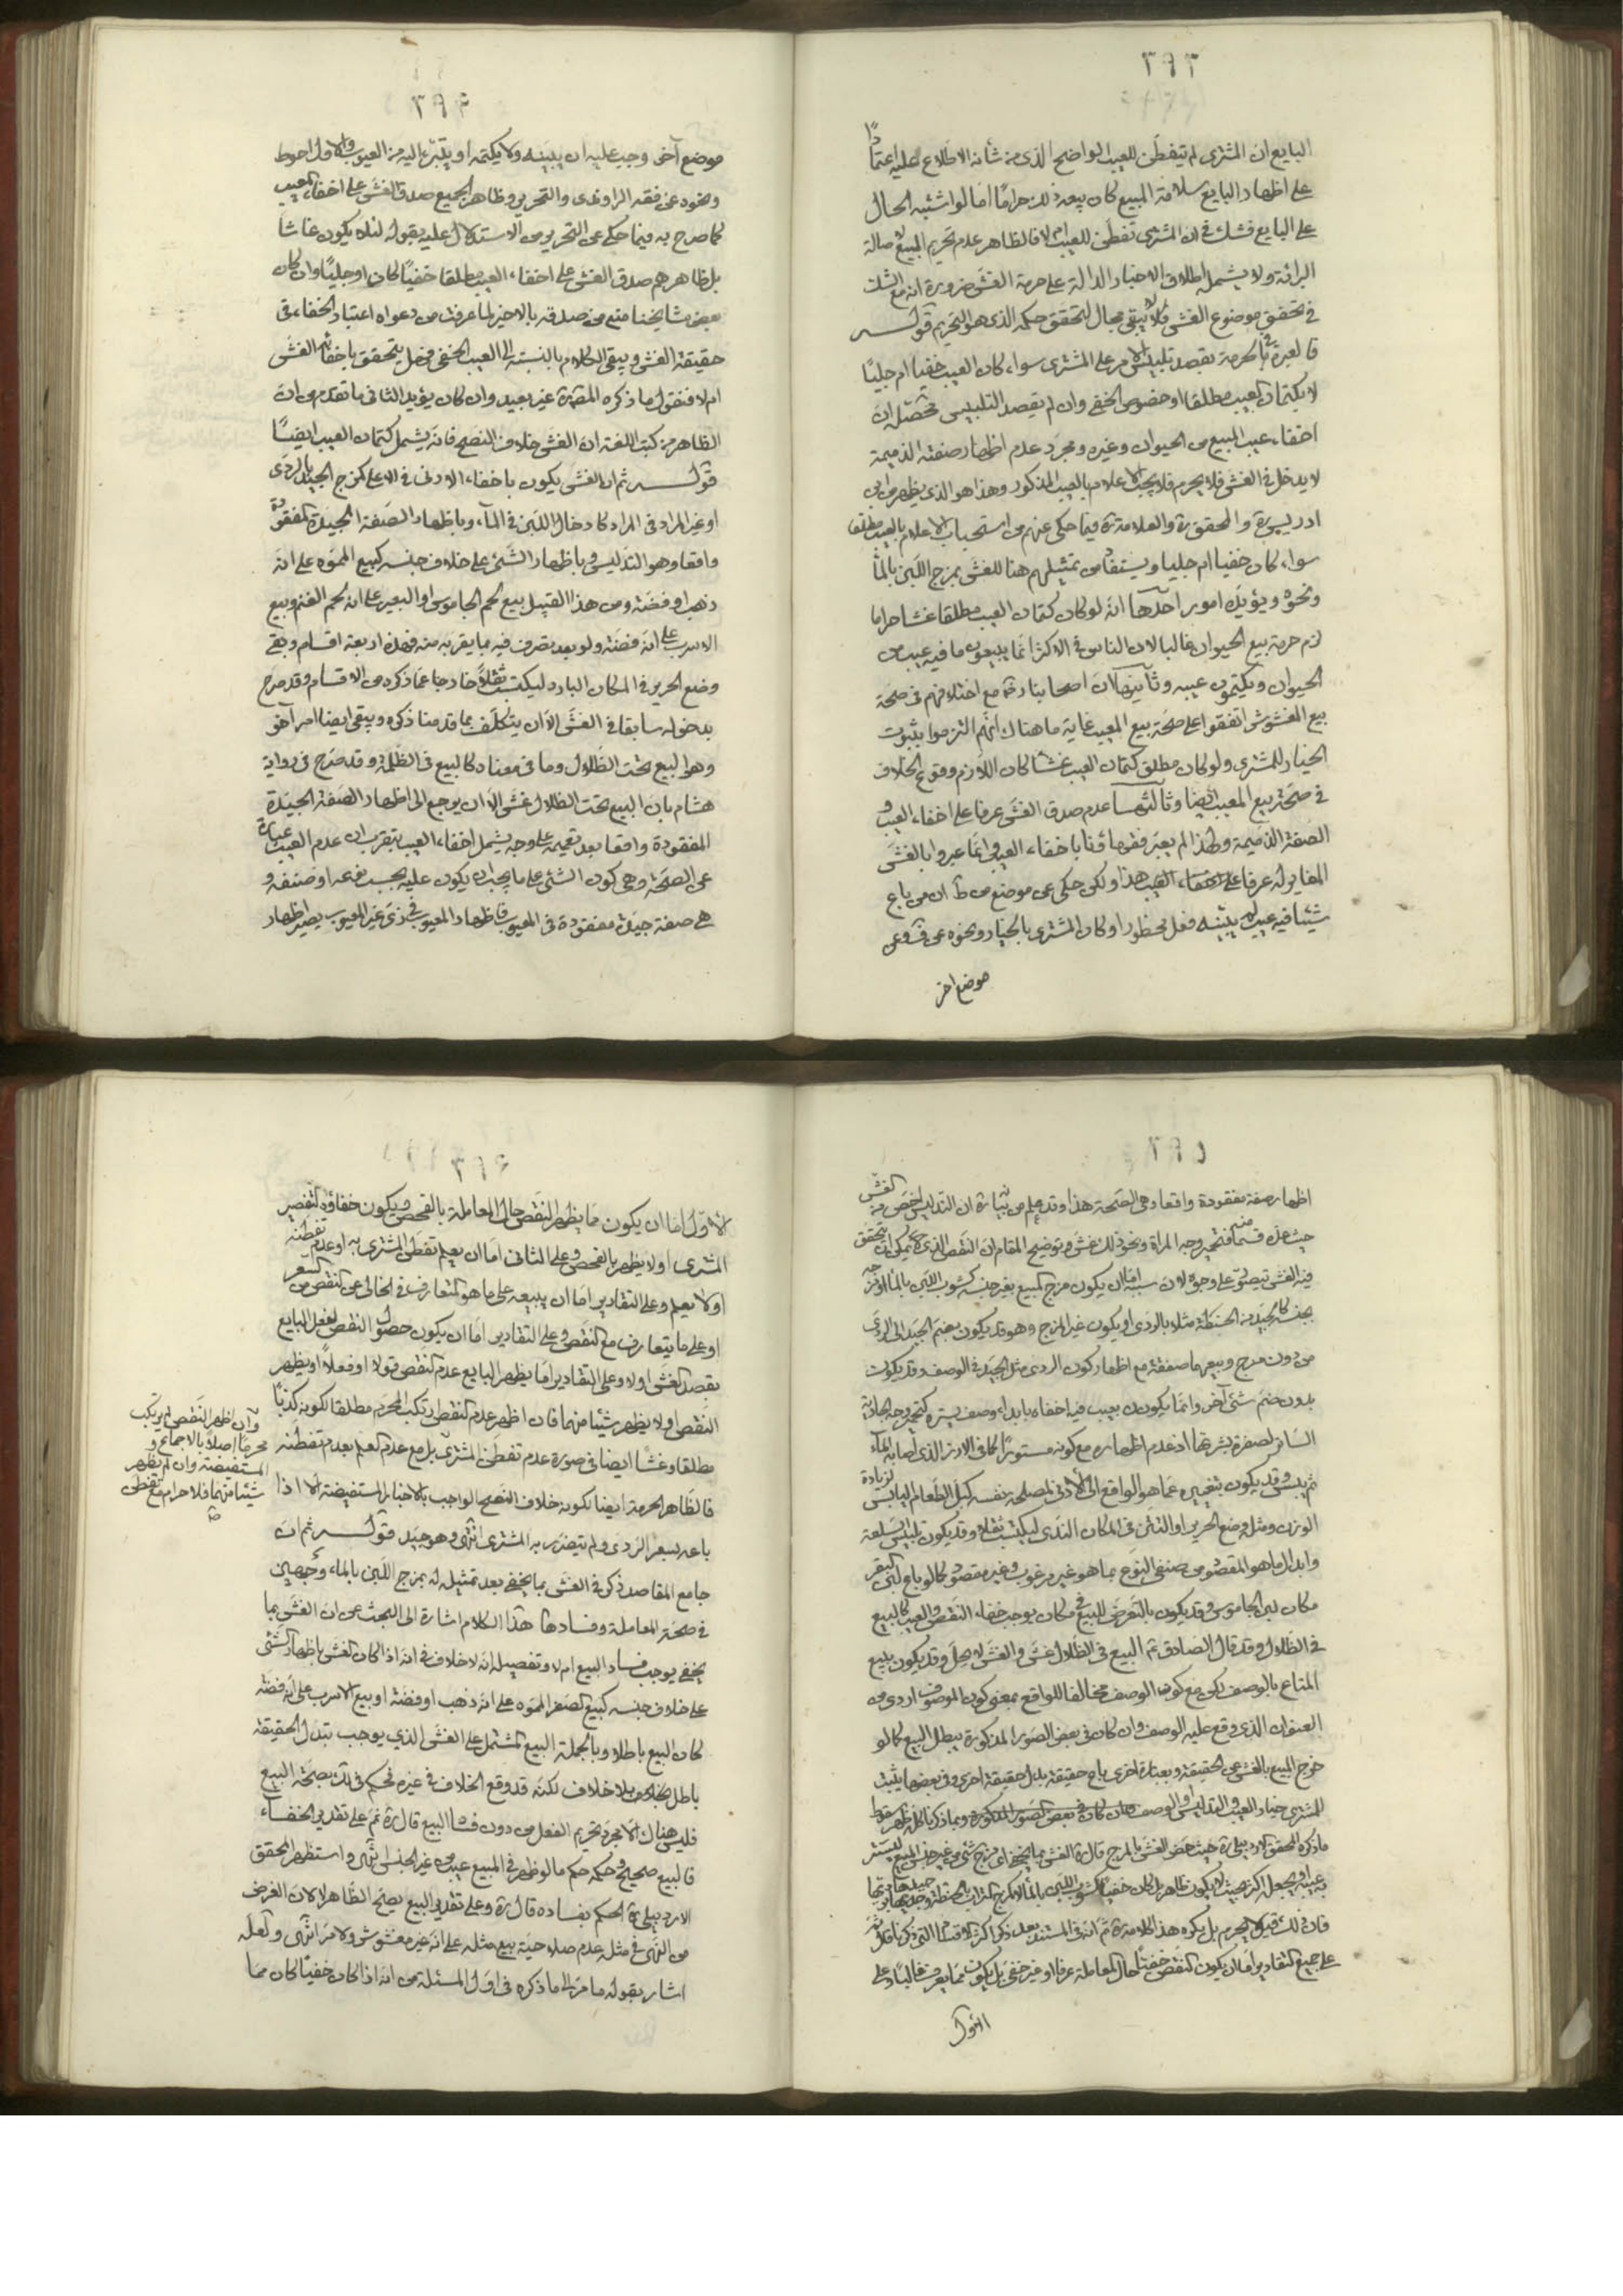 ٣٩٣
البايع ان المشترى لم يتفطن للعيب الواضح الذى من شأنه الاطلاع عليه اعتمادًا
على اظهار البايع سلامة المبيع كان بيعه ذلك حرامًا اما لو اشتبه الحال
على البايع فشك فى ان المشترى تفطن للعيب ام لا فالظاهر عدم تحريم البيع لاصالة
البرائة ولا يشمله اطلاق الاخبار الدالة على حرمة الغش ضرورة انه مع الشك
فى تحقق موضوع الغش فلا يبقى مجال لتحقق حكمه الذى هو التحريم قوله
فالعبرة فى الحرمة بقصد تلبيس الامر على المشترى سواء كان العيب خفيا ام جليًا
لا بكتمان العيب مطلقا او خصوص الخفى وان لم يقصد التلبيس محصّله ان
اخفاء عيب المبيع من الحيوان وغيره ومجرد عدم اظهار صفته الذميمة
لا يدخل فى الغش فلا يحرم فلا يجب الاعلام بالعيب المذكور وهذا هو الذى يظهر من ابن
ادريس ره والمحقق ره والعلامة ره فيما حكى عنهم من استحباب الاعلام بالعيب مطلقا
سواء كان خفيا ام جليا ويستفاد من تمثيلهم هنا للغش بمزج اللبن بالماء
ونحوه ويؤيده امور احدها انه لو كان كتمان العيب مطلقا غشا حراما
لزم حرمة بيع الحيوان غالبا لان الناس فى الاكثر انما يبيعون ما فيه عيب من
الحيوان ويكتمون عيبه وثانيها ان اصحابنا ره مع اختلافهم فى صحة
بيع المغشوش اتفقوا على صحة بيع المعيب غاية ما هناك انهم التزموا بثبوت
الخيار للمشترى ولو كان مطلق كتمان العيب غشا كان اللازم وقوع الخلاف
فى صحة بيع المعيب ايضا وثالثها عدم صدق الغش عرفا على اخفاء العيب و
الصفة الذميمة ولهذا لم يعبر فقهاؤنا باخفاء العيب وانما عبروا بالغش
المغاير له عرفا على اخفاء العيب هذا ولكن حكى عن موضع من ط ان من باع
شيئا فيه عيب لم يبينه فعل محظورا وكان المشترى بالخيار ونحوه عن ف وعن
موضع اخر
٣٩۴
موضع آخر وجب عليه ان يبينه ولا يكتمه او يتبرء اليه من العيوب والاول احوط
ونحوه عن فقه الراوندى والتحرير وظاهر الجميع صدق الغش على اخفاء العيب
كما صرح به فيما حكى عن التحرير من الاستدلال عليه بقوله لئلا يكون غاشا
بل ظاهرهم صدق الغش على اخفاء العيب مطلقا خفيًا كان او جليًا وان كان
بعض مشايخنا منع من صدقه بالاخير لما عرفت من دعواه اعتبار الخفاء فى
حقيقة الغش ويبقى الكلام بالنسبة الى العيب الخفى فهل يتحقق باخفائه الغش
ام لا فنقول ما ذكره المصنف ره غير بعيد وان كان يؤيد الثانى ما تقدم من ان
الظاهر من كتب اللغة ان الغش خلاف النصح فانه يشمل كتمان العيب ايضًا
قوله ثم ان الغش يكون باخفاء الادنى فى الاعلى كمزج الجيد بالردى
او غير المراد فى المراد كادخال اللبن فى الماء وباظهار الصفة الجيدة المفقودة
واقعا وهو التدليس وباظهار الشئ على خلاف جنسه كبيع المموه على انه
ذهب او فضة ومن هذا القبيل بيع لحم الجاموس او البعير على انه لحم الغنم وبيع
الاسرب على انه فضة ولو بعد تصرف فيه بما يقربه منه فهذه اربعة اقسام وبقى
وضع الحرير فى المكان البارد ليكتسب ثقلاً خارجا عما ذكره من الاقسام وقد صرح
بدخوله سابقا فى الغش الا ان يتكلف بما قدمنا ذكره ويبقى ايضا امر آخر
وهو البيع تحت الظلال وما فى معناه كالبيع فى الظلمة وقد صرح فى رواية
هشام بان البيع تحت الظلال غش الا ان يرجع الى اظهار الصفة الجيدة
المفقودة واقعا بعد تعميمه على وجه يشمل اخفاء العيب بتقريب ان عدم العيب عبارة
عن الصحة وهى كون الشئ على ما يجب ان يكون عليه بحسب نوعه او صنفه و
هى صفة جيدة مفقودة فى المعيوب فاظهار المعيوب فى زى غير المعيوب يصير اظهار
٣٩٥
اظهار صفة مفقودة واقعا وهى الصحة هذا وقد علم من بيانه ان التدليس اخص من الغش
حيث عده قسما منه فتحمير وجه المراة ونحو ذلك غش وتوضيح المقام ان النقص الذى يمكن ان يتحقق
فيه الغش يتصور على وجوه لان سببه اما ان يكون مزج المبيع بغير جنسه كشوب اللبن بالماء او مزجه
بجنسه كالجيد من الحنطة مثلا بالردى او يكون غير المزج وهو قد يكون بضم الجيد الى الردى
من دون مزج وبيعهما صفقة مع اظهار كون الردى مثل الجيد فى الوصف وقد يكون
بدون ضم شئ آخر وانما يكون بعيب فيه اخفاه بابداء وصف يستره كتحمير وجه الجارية
الساتر لصفرة بشرتها او عدم اظهاره مع كونه مستورًا كما فى الارز الذى اصابه الماء
ثم يبس وقد يكون بتغييره عما هو الواقع الى الادنى لمصلحة نفسه كبل الطعام اليابس لزيادة
الوزن ومثل وضع الحرير او التتن فى المكان الندى ليكتسب ثقلا وقد يكون بتلبيس السلعة
وابدال ما هو المقصود من صنفى النوع بما هو غير مرغوب وغير مقصود كما لو باع لبن البقر
مكان لبن الجاموس وقد يكون بالتعرض للبيع فى مكان يوجب خفاء النقص والعيب كالبيع
فى الظلال وقد قال الصادق ع البيع فى الظلال غش والغش لا يحل وقد يكون ببيع
المتاع بالوصف لكن مع كون الوصف مخالفا للواقع بمعنى كون الموصوف اردى من
العنوان الذى وقع عليه الوصف وان كان فى بعض الصور المذكورة يبطل البيع كما لو
خرج المبيع بالغش عن الحقيقة وبعبارة اخرى باع حقيقة بدل حقيقة اخرى وفى بعضها يثبت
للمشترى خيار العيب او التدليس او الوصف وبما ذكرنا كله ظهر سقوط
ما ذكره المحقق الاردبيلى ره حيث خص الغش بالمزج قال ره الغش بما يخفى اى مزج شئ من غير جنس المبيع ليستتر
فيه عيبه
فان ذلك قيل لا يحرم بل يكره هذا كلامه ره ثم انه فى المستند بعد ذكر اكثر الاقسام التى ذكرناها قال ثم
على جميع التقادير اما ان يكون النقص خفيًا حال المعاملة عرفا او غير خفى بل يكون مما يعرف غالبًا وعلى
الاول
٣٩۶
الاول اما ان يكون مما يظهر النقص حال المعاملة بالفحص ويكون خفاؤه لتقصير
المشترى او لا يظهر بالفحص وعلى الثانى اما ان يعلم تفطن المشترى به او عدم تفطنه
او لا يعلم وعلى التقادير اما ان يبيعه على ما هو المتعارف فى الخالى عن النقص من السعر
او على ما يتعارف مع النقص وعلى التقادير اما ان يكون حصول النقص لفعل البايع
بقصد الغش او لا وعلى التقادير اما يظهر البايع عدم النقص قولا او فعلا او يظهر
النقص او لا يظهر شيئا منهما فان اظهر عدم النقص ارتكب المحرم مطلقا لكونه كذبًا
مطلقا وغشا ايضا فى صورة عدم تفطن المشترى بل مع عدم العلم بعدم تفطنه
وان اظهر النقص لم يرتكب
محرمًا اصلا بالاجماع و
المستفيضة وان لم يظهر
شيئا منهما فلا حرام مع تفطن
فالظاهر الحرمة ايضا لكونه خلاف النصح الواجب بالاخبار المستفيضة الا اذا
باعه بسعر الردى ولم يتضرر به المشترى انتهى وهو جيد قوله ثم ان
جامع المقاصد ذكر فى الغش بما يخفى بعد تمثيله له بمزج اللبن بالماء وجهين
فى صحة المعاملة وفسادها هذا الكلام اشارة الى البحث عن ان الغش بما
يخفى يوجب فساد البيع ام لا وتفصيله انه لا خلاف فى انه اذا كان الغش باظهار الشئ
على خلاف جنسه كبيع الصفر المموه على انه ذهب او فضة او بيع الاسرب على انه فضة
كان البيع باطلا وبالجملة البيع المشتمل على الغش الذي يوجب تبدل الحقيقة
باطل بلا خلاف لكنه قد وقع الخلاف فى غيره فحكم فى لك بصحة البيع
فليس هناك الا مجرد تحريم الفعل من دون فساد البيع قال ره ثم على تقدير الخفاء
فالبيع صحيح وحكمه حكم ما لو ظهر فى المبيع عيب من غير الجنس انتهى واستظهر المحقق
الاردبيلى ره الحكم بفساده قال ره وعلى تقدير البيع يصح الظاهر لا لان الغرض
من النهى فى مثله عدم صلاحية بيع مثله على انه غير مغشوش ولا مر انتهى ولعله
اشار بقوله ما مر الى ما ذكره فى اول المسئلة من انه اذا كان خفيًا كان مما